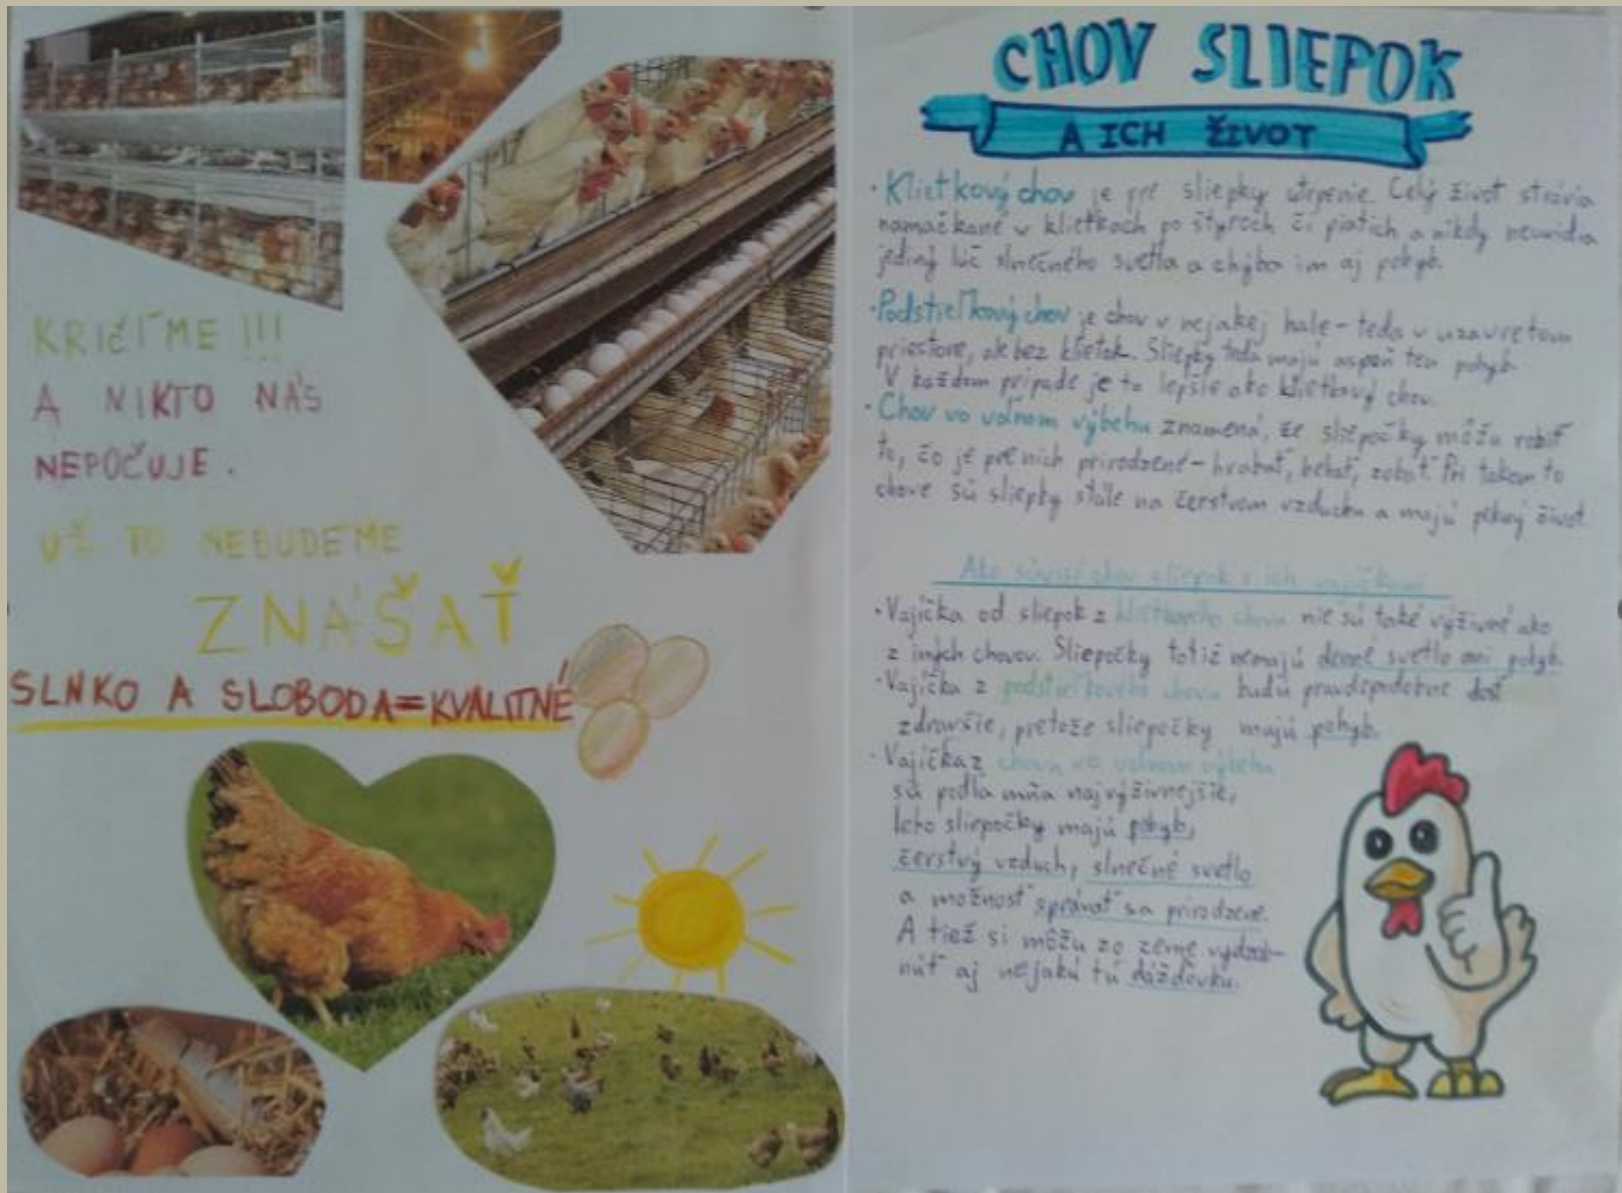 KRIČÍME !!!
A NIKTO NÁS
NEPOČUJE.
UŽ TO NEBUDEME
ZNÁŠAŤ
SLNKO A SLOBODA=KVALITNÉ
CHOV SLIEPOK
A ICH ŽIVOT
• Klietkový chov je pre sliepky utrpenie. Celý život strávia
namačkané v klietkach po štyroch či piatich a nikdy neuvidia
jediný lúč slnečného svetla a chýba im aj pohyb.
• Podstieľkový chov je chov v nejakej hale - teda v uzavretom
priestore, ale bez klietok. Sliepky teda majú aspoň ten pohyb.
V každom prípade je to lepšie ako klietkový chov.
• Chov vo voľnom výbehu znamená, že sliepočky môžu robiť
to, čo je pre nich prirodzené - hrabať, behať, zobať. Pri takom to
chove sú sliepky stále na čerstvom vzduchu a majú pekný život.
Ako súvisí chov sliepok s ich vajíčkami
• Vajíčka od sliepok z klietkového chovu nie sú také výživné ako
z iných chovov. Sliepočky totiž nemajú denné svetlo ani pohyb.
• Vajíčka z podstieľkového chovu budú pravdepodobne dosť
zdravšie, pretože sliepočky majú pohyb.
• Vajíčka z chovu vo voľnom výbehu
sú podľa mňa najvýživnejšie,
lebo sliepočky majú pohyb,
čerstvý vzduch, slnečné svetlo
a možnosť správať sa prirodzene.
A tiež si môžu zo zeme vyzob-
núť aj nejakú tú dážďovku.